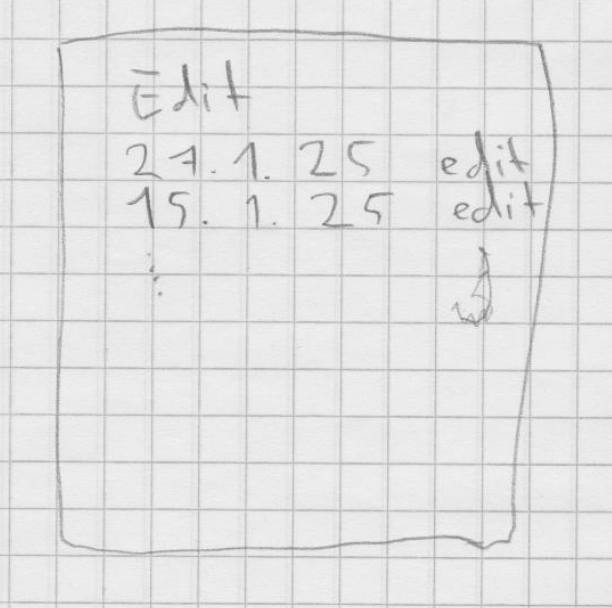 Edit
27.1.25 edit
15.1.25 edit
⋮